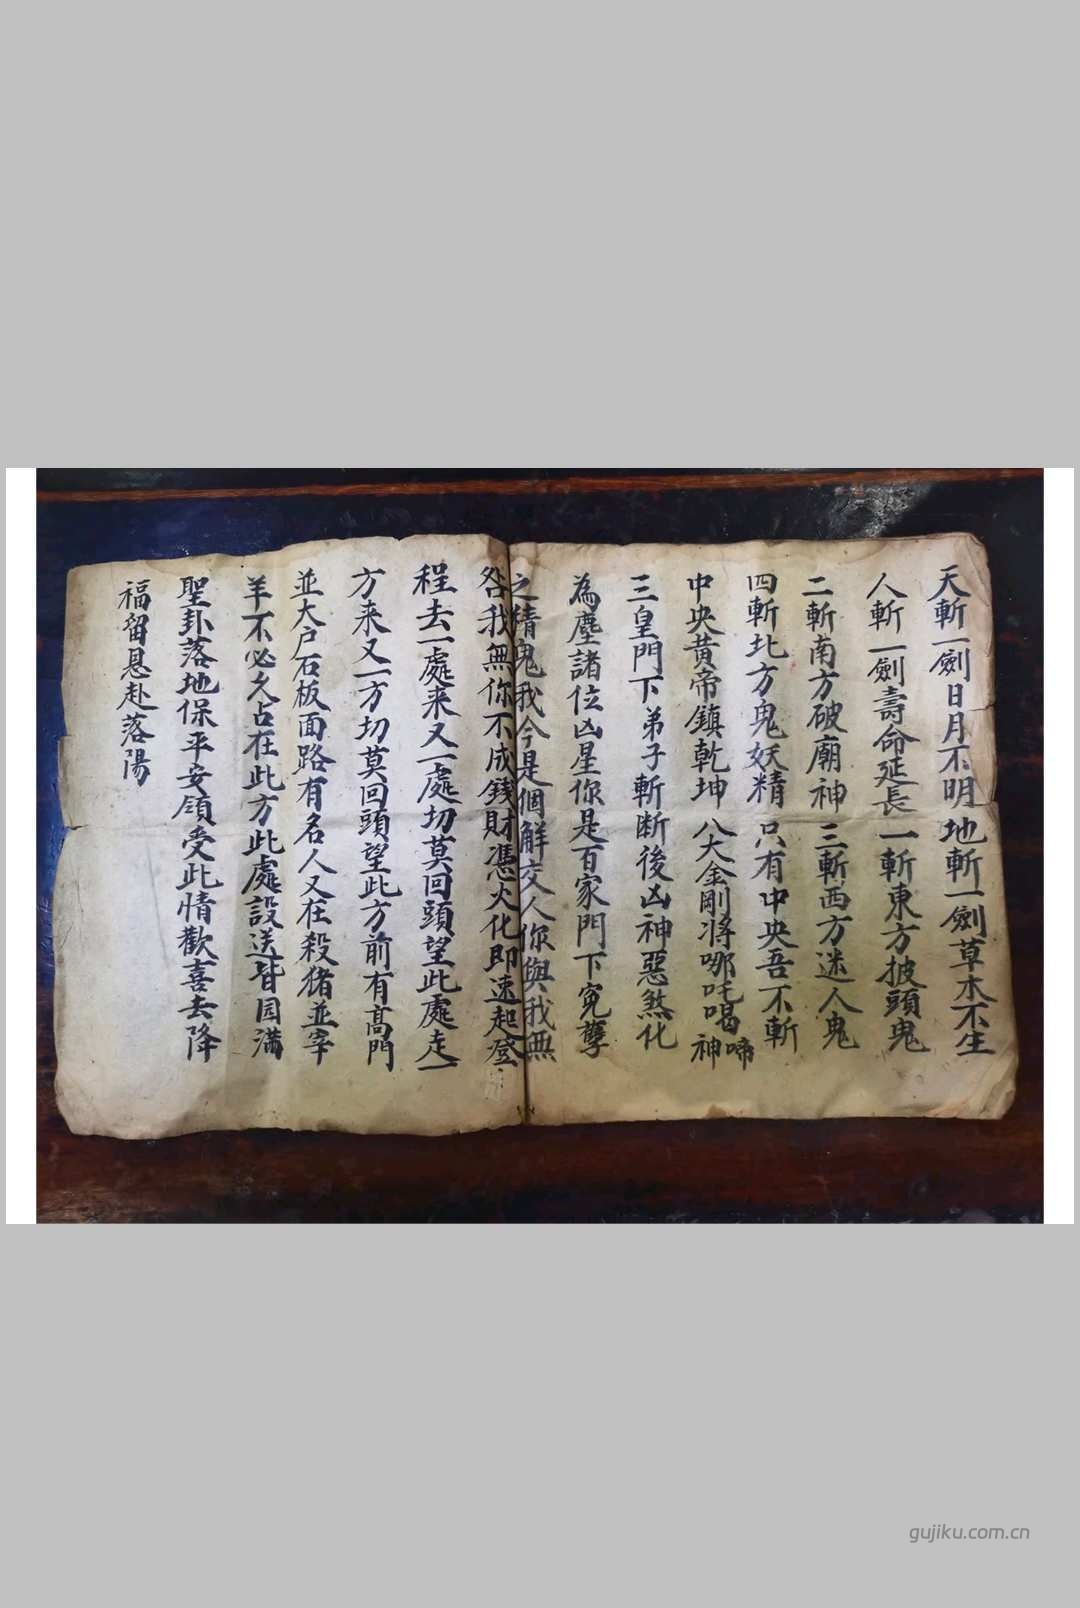 天斬一劍日月不明地斬一劍草木不生
人斬一劍壽命延長一斬東方披頭鬼
二斬南方破廟神三斬西方迷人鬼
四斬北方鬼妖精只有中央吾不斬
中央黄帝鎮乾坤八大金剛将哪吒喝啼神
三皇門下弟子斬断後凶神惡煞化
為塵諸位凶星你是百家門下寃孽
之精鬼我今是個解交人你與我無
咎我無你不成錢財憑火化即速起登
程去一處来又一處切莫回頭望此處走一
方来又一方切莫回頭望此方前有高門
並大户石板面路有名人又在殺猪並宰
羊不必久占在此方此處設送皆园满
聖卦落地保平安領受此情歡喜去降
福留恩赴落陽
gujiku.com.cn